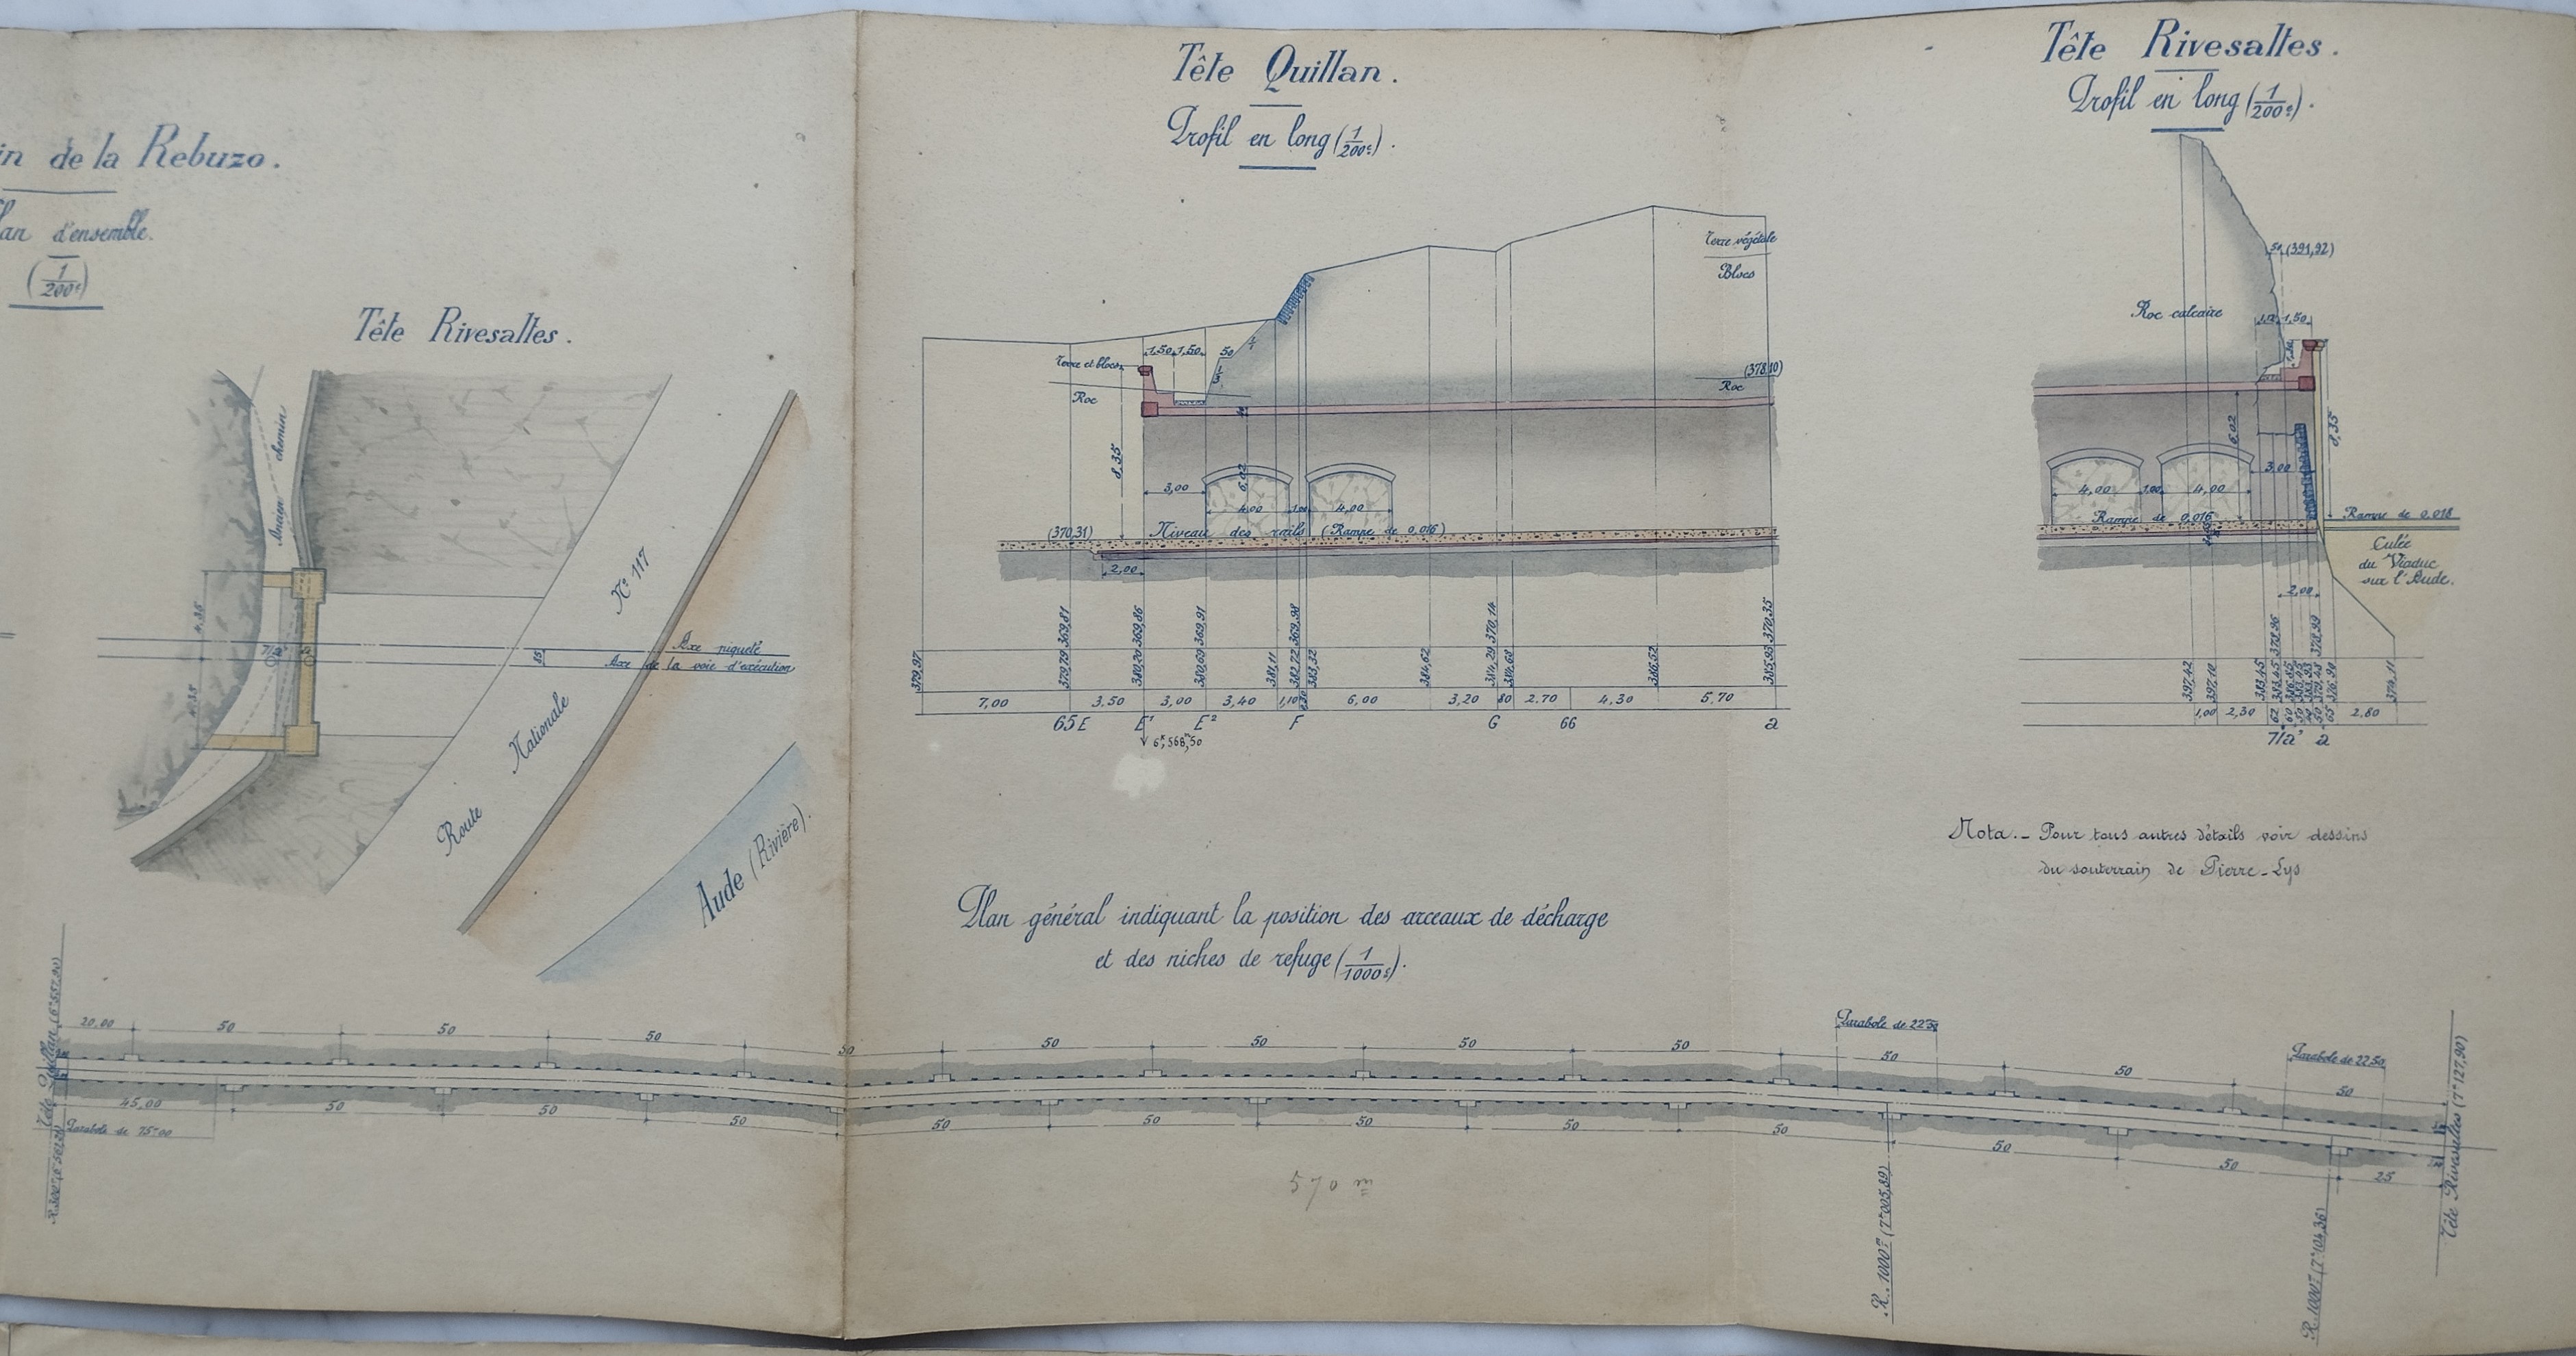 de la Rebuzo.
d'ensemble.
(1/200e)
Tête Rivesaltes.
Ancien chemin
4,35
4,35
Nº 117
Route Nationale
Axe piqueté
Axe de la voie d'exécution
Aude (Rivière).
Tête Quillan.
Profil en long (1/200e).
Terre végétale
Blocs
(378,10)
Roc
Terre et blocs
Roc
1,50 1,50 50
8,35
3,00
6,02
4,00 1,00 4,00
(370,31) Niveau des rails (Rampe de 0,016)
2,00
379,97
379,79 369,81
380,20 369,86
380,69 369,91
381,11
382,72 369,98
383,32
384,62
384,29 370,14
384,68
386,52
385,93 370,35
7,00 3,50 3,00 3,40 1,10 6,00 3,20 80 2,70 4,30 5,70
65E E¹ E² F G 66 a
6k,568m,50
Tête Rivesaltes.
Profil en long (1/200e).
(391,92)
Roc calcaire
1,50
6,02
8,35
3,00
4,00 1,00 4,00
Rampe de 0,016
Rampe de 0,018
Culée
du Viaduc
sur l'Aude.
2,00
397,42
397,10
383,45
374,11
1,00 2,30 62 60 50 65 2,80
71a' a
Nota._ Pour tous autres détails voir dessins
du souterrain de Pierre-Lys
Plan général indiquant la position des arceaux de décharge
et des niches de refuge (1/1000e).
Tête Quillan (6k557,90)
20,00 50 50 50 50 50 50 50 50 50 50 50
Parabole de 22m50
Parabole de 22,50
45,00 50 50 50 50 50 50 50 50 50 50 25
Parabole de 75m00
Tête Rivesaltes (7k127,90)
R. 1000m (7k005,89)
R. 1000m (7k104,36)
570 m